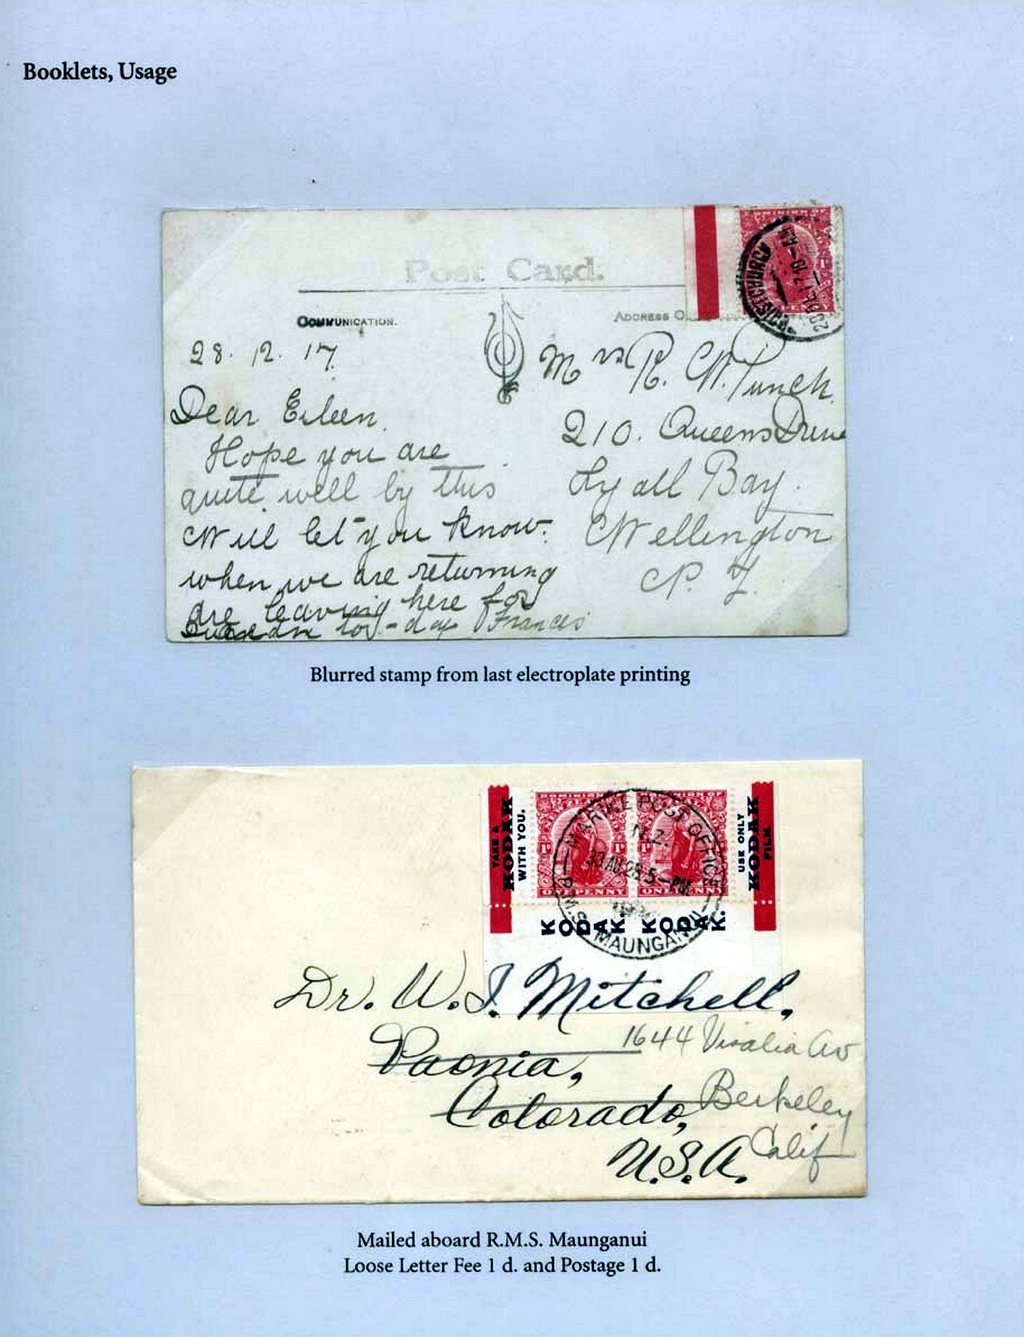 Booklets, Usage
Post Card.
COMMUNICATION.
ADDRESS O
DOMINION OF
CHRISTCHURCH
28. 12. 17.
Dear Eileen.
Hope you are
quite well by this
Will let you know.
when we are returning
are leaving here for
Dunedin to-day Frances
Mrs R. W. Tunch.
210. Queens Drive
Lyall Bay.
Wellington
N. Z.
Blurred stamp from last electroplate printing
TAKE A
KODAK
WITH YOU.
DOMINION OF
ONE PENNY
ONE PENNY
MARINE POST OFFICE
N.Z.
R.M.S. MAUNGANUI
USE ONLY
KODAK
FILM.
KODAK. KODAK.
Dr. W. J. Mitchell,
Paonia,
Colorado,
U.S.A.
1644 Visalia Av
Berkeley
Calif
Mailed aboard R.M.S. Maunganui
Loose Letter Fee 1 d. and Postage 1 d.